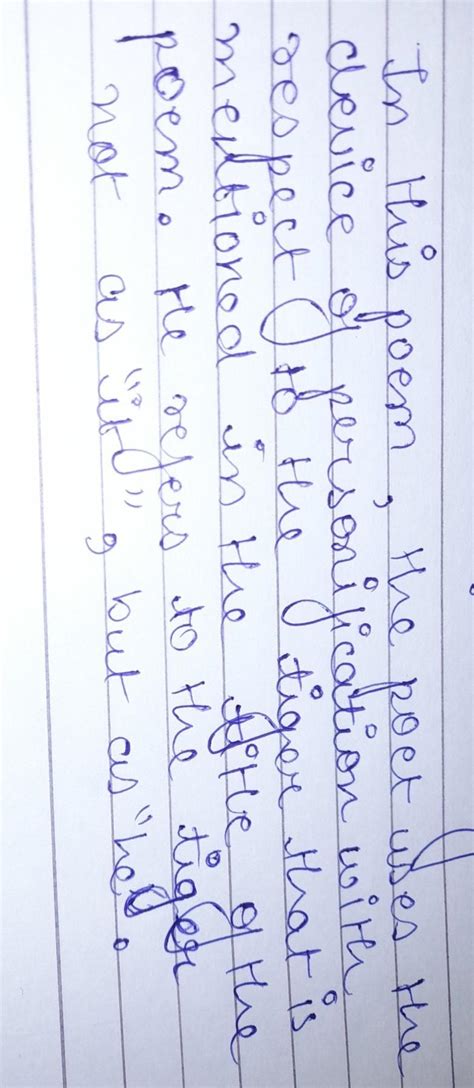 In this poem, the poet uses the
device of personification with
respect to the tiger that is
mentioned in the title of the
poem. He refers to the tiger
not as "it", but as "he".